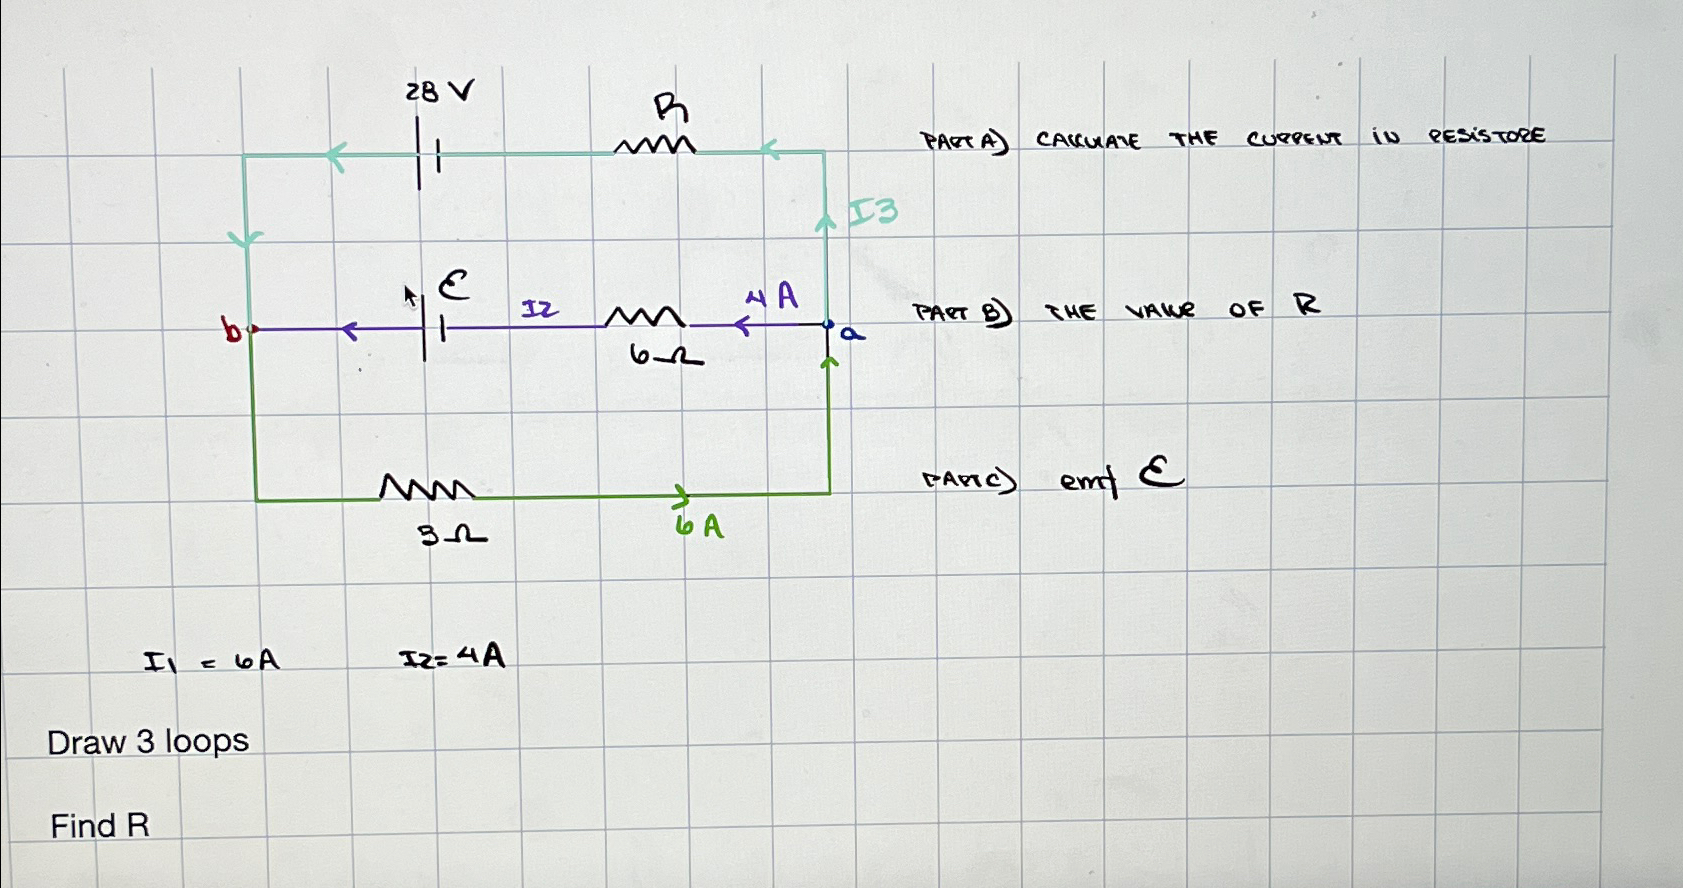 28 V
R
PART A) CALCULATE THE CURRENT IN RESISTORE
I3
ε
I2
4 A
b
a
6Ω
PART B) THE VALUE OF R
PART C) emf ε
3Ω
6 A
I1 = 6A I2= 4A
Draw 3 loops
Find R